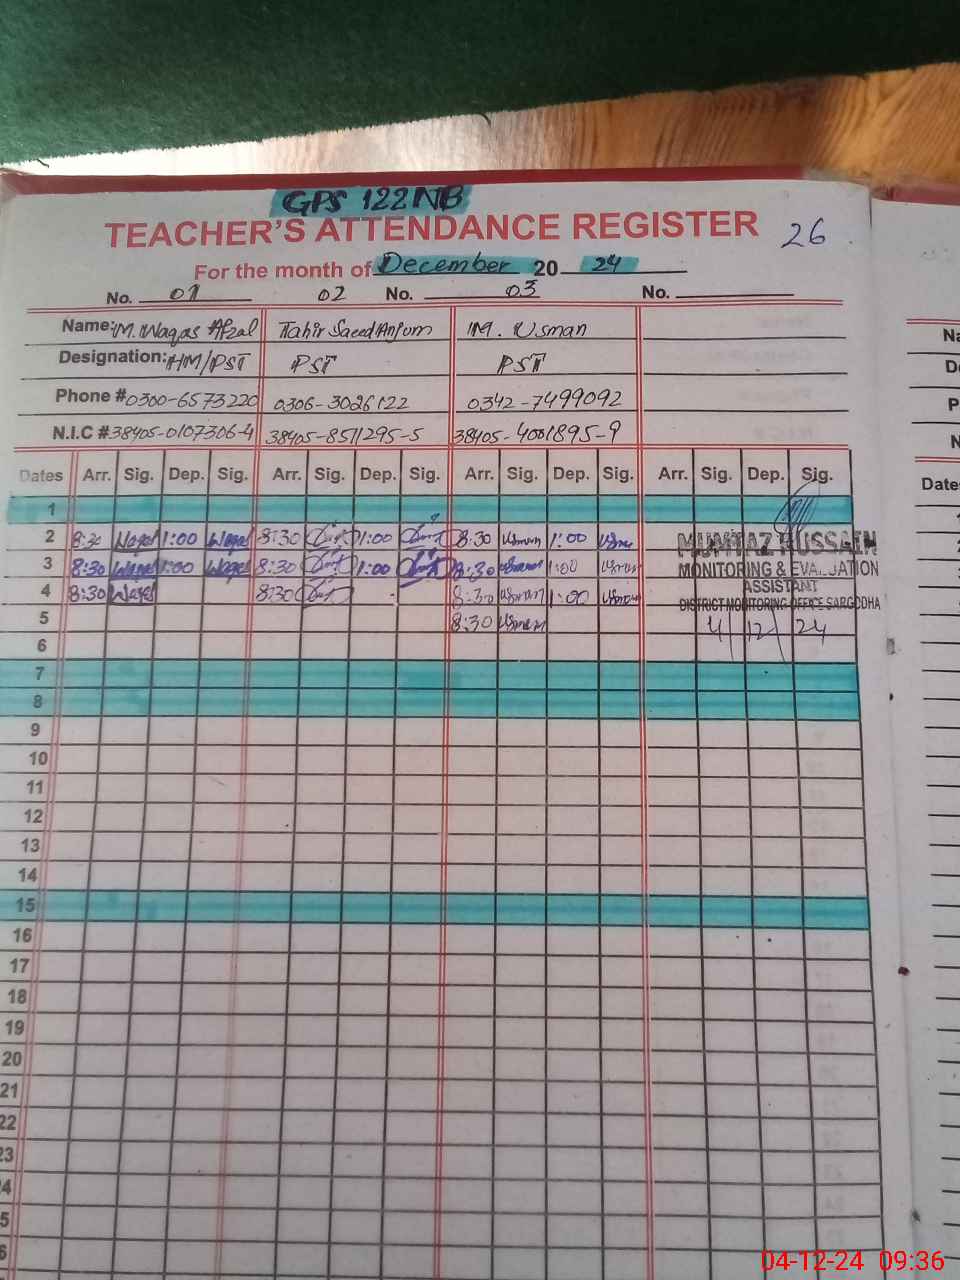 GPS 122NB
TEACHER'S ATTENDANCE REGISTER 26
For the month of December 20 24
No. 01 02 No. 03 No.
Name: M. Waqas Afzal Tahir Saeed Anjum M. Usman
Designation: HM/PST PST PST
Phone # 0300-6573220 0306-3026122 0342-7499092
N.I.C # 38405-0107306-4 38405-8511295-5 38405-4001895-9
Dates Arr. Sig. Dep. Sig. Arr. Sig. Dep. Sig. Arr. Sig. Dep. Sig. Arr. Sig. Dep. Sig.
1
2 8:30 Waqas 1:00 Waqas 8:30 1:00 8:30 Usman 1:00 Usman
MUMTAZ HUSSAIN
3 8:30 Waqas 1:00 Waqas 8:30 1:00 8:30 Usman 1:00 Usman
MONITORING & EVALUATION
ASSISTANT
4 8:30 Waqas 8:30 8:30 Usman 1:00 Usman
DISTRICT MONITORING OFFICE SARGODHA
5 8:30 Usman
4/12/24
6
7
8
9
10
11
12
13
14
15
16
17
18
19
20
21
22
23
Dates
04-12-24 09:36